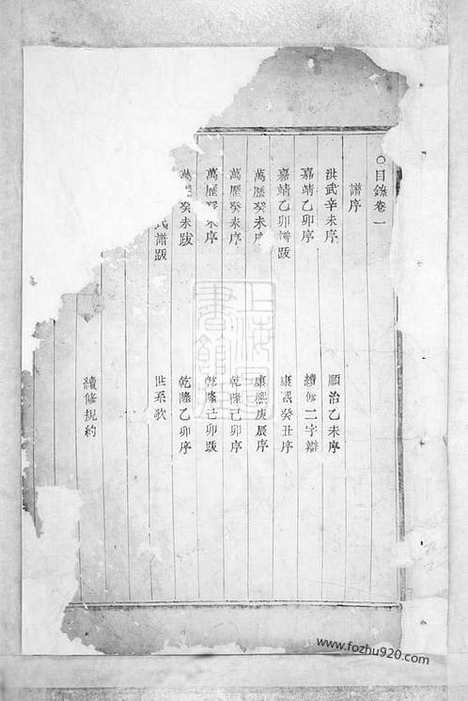 ○目錄卷一
譜序
洪武辛未序 順治乙未序
嘉靖乙卯序 續修二字辯
嘉靖乙卯譜跋 康熙癸丑序
萬歷癸未序 康熙庚辰序
萬歷癸未序 乾隆己卯序
萬歷癸未序 乾隆己卯跋
萬歷癸未跋 乾隆乙卯序
氏譜跋 世系歌
續修規約
www.fozhu920.com